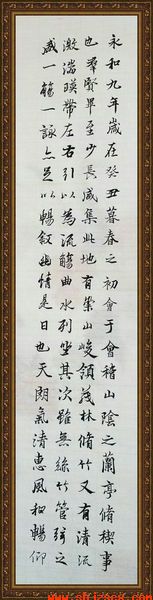 永和九年歲在癸丑暮春之初會于會稽山陰之蘭亭脩稧事
也羣賢畢至少長咸集此地有崇山峻領茂林脩竹又有清流
激湍暎帶左右引以為流觴曲水列坐其次雖無絲竹管弦之
盛一觴一詠亦足以暢叙幽情是日也天朗氣清惠風和暢仰